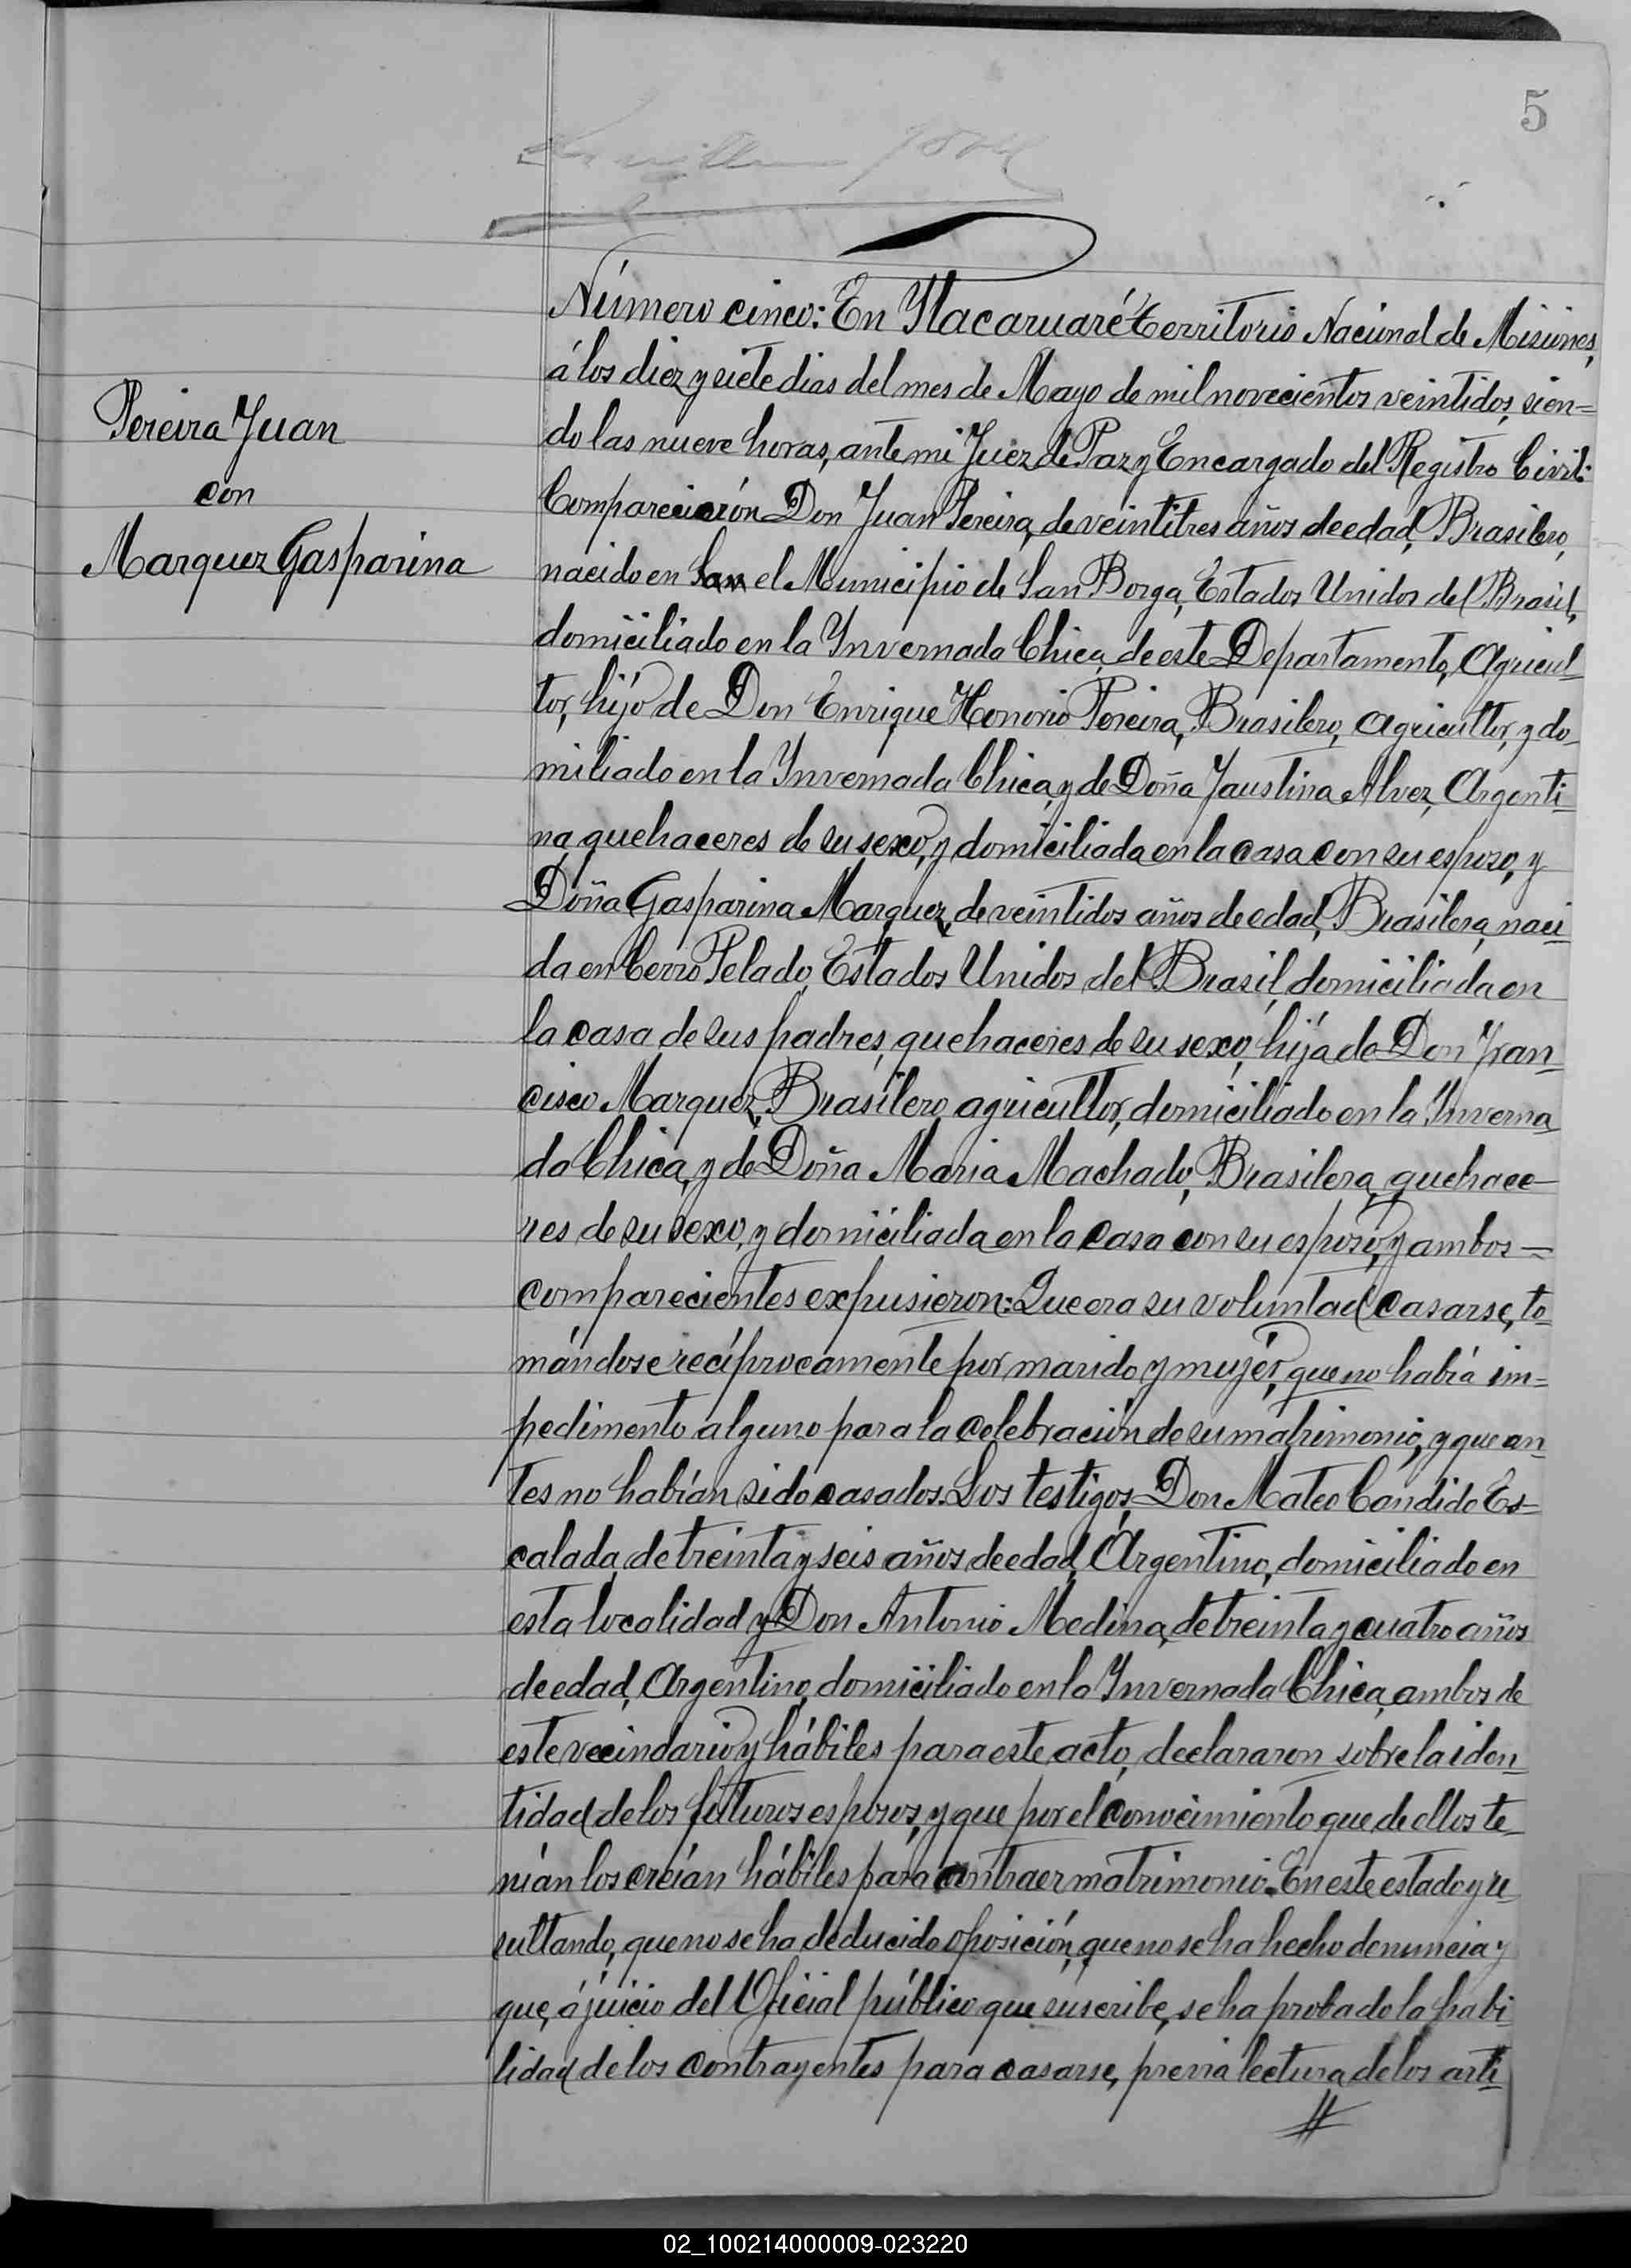 5
Número cinco: En Ytacaruaré territorio Nacional de Misiones,
á los diez y siete dias del mes de Mayo de mil novecientos veintidos, sien=
do las nueve horas, ante mi Juez de Paz y Encargado del Registro Civil:
Pereira Juan
con
Marquez Gasparina
Comparecieron Don Juan Pereira, de veintitres años de edad, Brasilero,
nacido en San el Municipio de San Borga, Estados Unidos del Brasil,
domiciliado en la Ynvernada Chica, de este Departamento, Agricul-
tor, hijo de Don Enrique Honorio Pereira, Brasilero, agricultor, y do-
miliado en la Ynvernada Chica, y de Doña Faustina Alvez, Argenti-
na, quehaceres de su sexo, y domiciliada en la casa con su esposo, y
Doña Gasparina Marquez, de veintidos años de edad, Brasilera, naci-
da en Cerro Pelado, Estados Unidos del Brasil, domiciliada en
la casa de sus padres, quehaceres de su sexo, hija de Don Fran-
cisco Marquez, Brasilero, agricultor, domiciliado en la Ynverna-
da Chica, y de Doña Maria Machado, Brasilera, quehace-
res de su sexo, y domiciliada en la casa con su esposo, y ambos —
comparecientes expusieron: Que era su voluntad casarse, to-
mándose recíprocamente por marido y mujér, que no habiá im=
pedimento alguno para la celebración de su matrimonio, y que an-
tes no habían sido casados. Los testigos, Don Mateo Candido Es-
calada, de treinta y seis años de edad, Argentino, domiciliado en
esta localidad y Don Antonio Medina, de treinta y cuatro años
de edad, Argentino, domiciliado en la Ynvernada Chica, ambos de
este vecindario y hábiles para este acto, declararon sobre la iden-
tidad de los futuros esposos, y que por el conocimiento que de ellos te-
nián los creían hábiles para contraer matrimonio. En este estado y re-
sultando, que no se ha deducido oposición, que no se ha hecho denuncia y
que, á juicio del Oficial público que suscribe, se ha probado la habi-
lidad de los contrayentes para casarse, previa lectura de los arti-
//
02_100214000009-023220